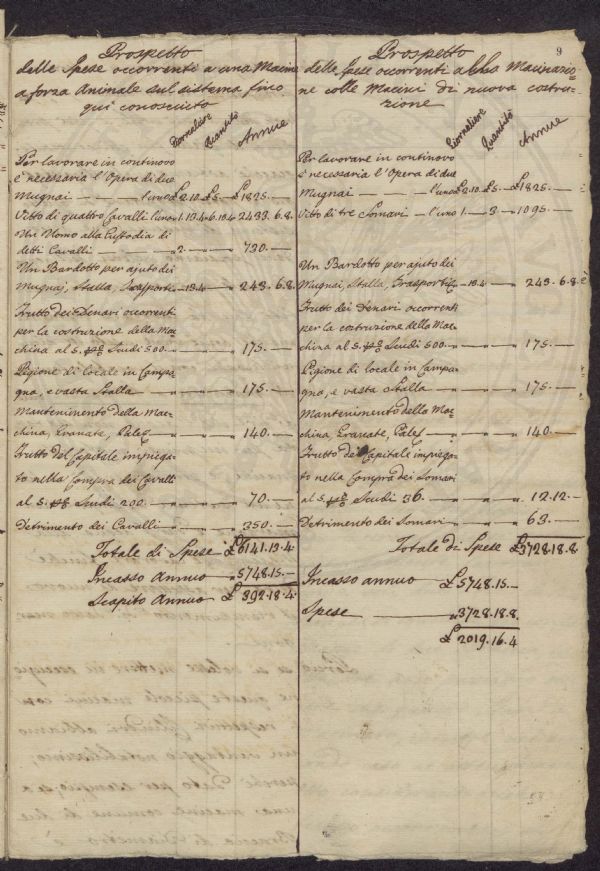 Prospetto
delle Spese occorrenti a una Macine
a forza Animale sul sistema fino
qui conosciuto
Giornaliere Quantità Annue
Per lavorare in continovo
è necessaria l'Opera di due
Mugnai — l'uno £2.10. £5. — £1825. —
Vitto di quattro Cavalli l'uno 1.13.4 6.13.4 2433.6.8.
Un Uomo alla Custodia di
detti Cavalli — 2. — 730. —
Un Bardotto per ajuto dei
Mugnaj, Stalla, Trasporti — 13.4 — 243.6.8.
Frutto dei Denari occorrenti
per la costruzione della Mac=
china al 5. p% Scudi 500. — 175. —
Pigione di locale in Campa=
gna, e vasta Stalla — 175. —
Mantenimento della Mac=
china, Granate, Pale — 140. —
Frutto del Capitale impiega=
to nella Compra dei Cavalli
al 5. p% Scudi 200. — 70. —
Detrimento dei Cavalli — 350. —
Totale di Spese £6141.13.4.
Incasso Annuo 5748.15. —
Scapito Annuo £ 392.18.4.
9
Prospetto
delle Spese occorrenti Macinazio=
ne colle Macini di nuova costru=
zione
Giornaliere Quantità Annue
Per lavorare in continovo
è necessaria l'Opera di due
Mugnai — l'uno £2.10. £5. — £1825. —
Vitto di tre Somari — l'uno 1. — 3 — 1095. —
Un Bardotto per ajuto dei
Mugnai, Stalla, Trasporti — 13.4 — 243.6.8.
Frutto dei Denari occorrenti
per la costruzione della Mac=
china al 5. p% Scudi 500. — 175. —
Pigione di locale in Campa=
gna, e vasta Stalla — 175. —
Mantenimento della Mac=
china, Granate, Pale — 140. —
Frutto del Capitale impiega=
to nella Compra dei Somari
al 5. p% Scudi 36. — 12.12. —
Detrimento dei Somari — 63. —
Totale di Spese £3728.18.8.
Incasso annuo £5748.15. —
Spese — 3728.18.8.
£ 2019.16.4